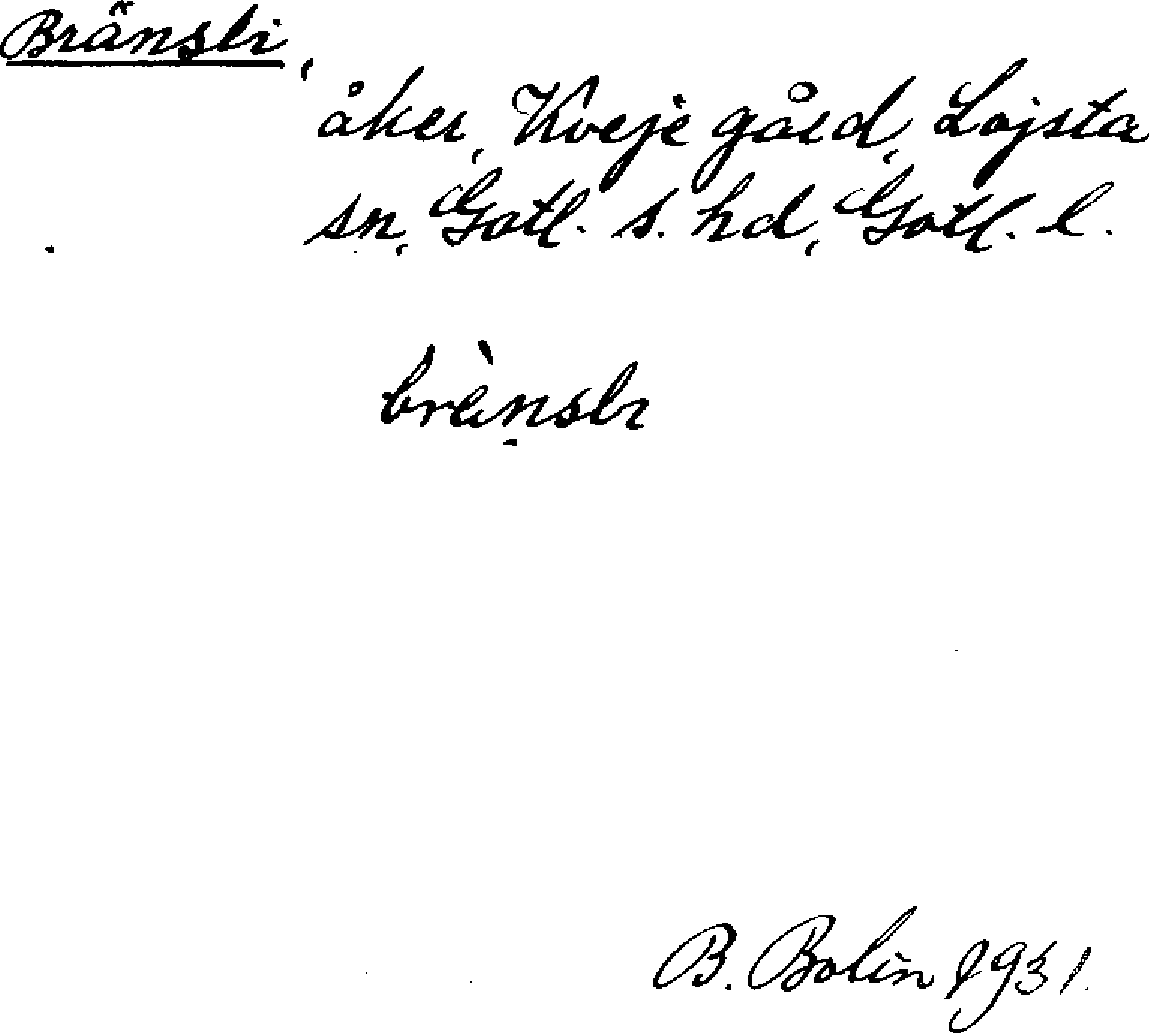 Bränsli,
åker, Kveje gård, Lojsta
sn, Gotl. s. hd, Gotl. l.
brènslı
B. Bolin 1931.